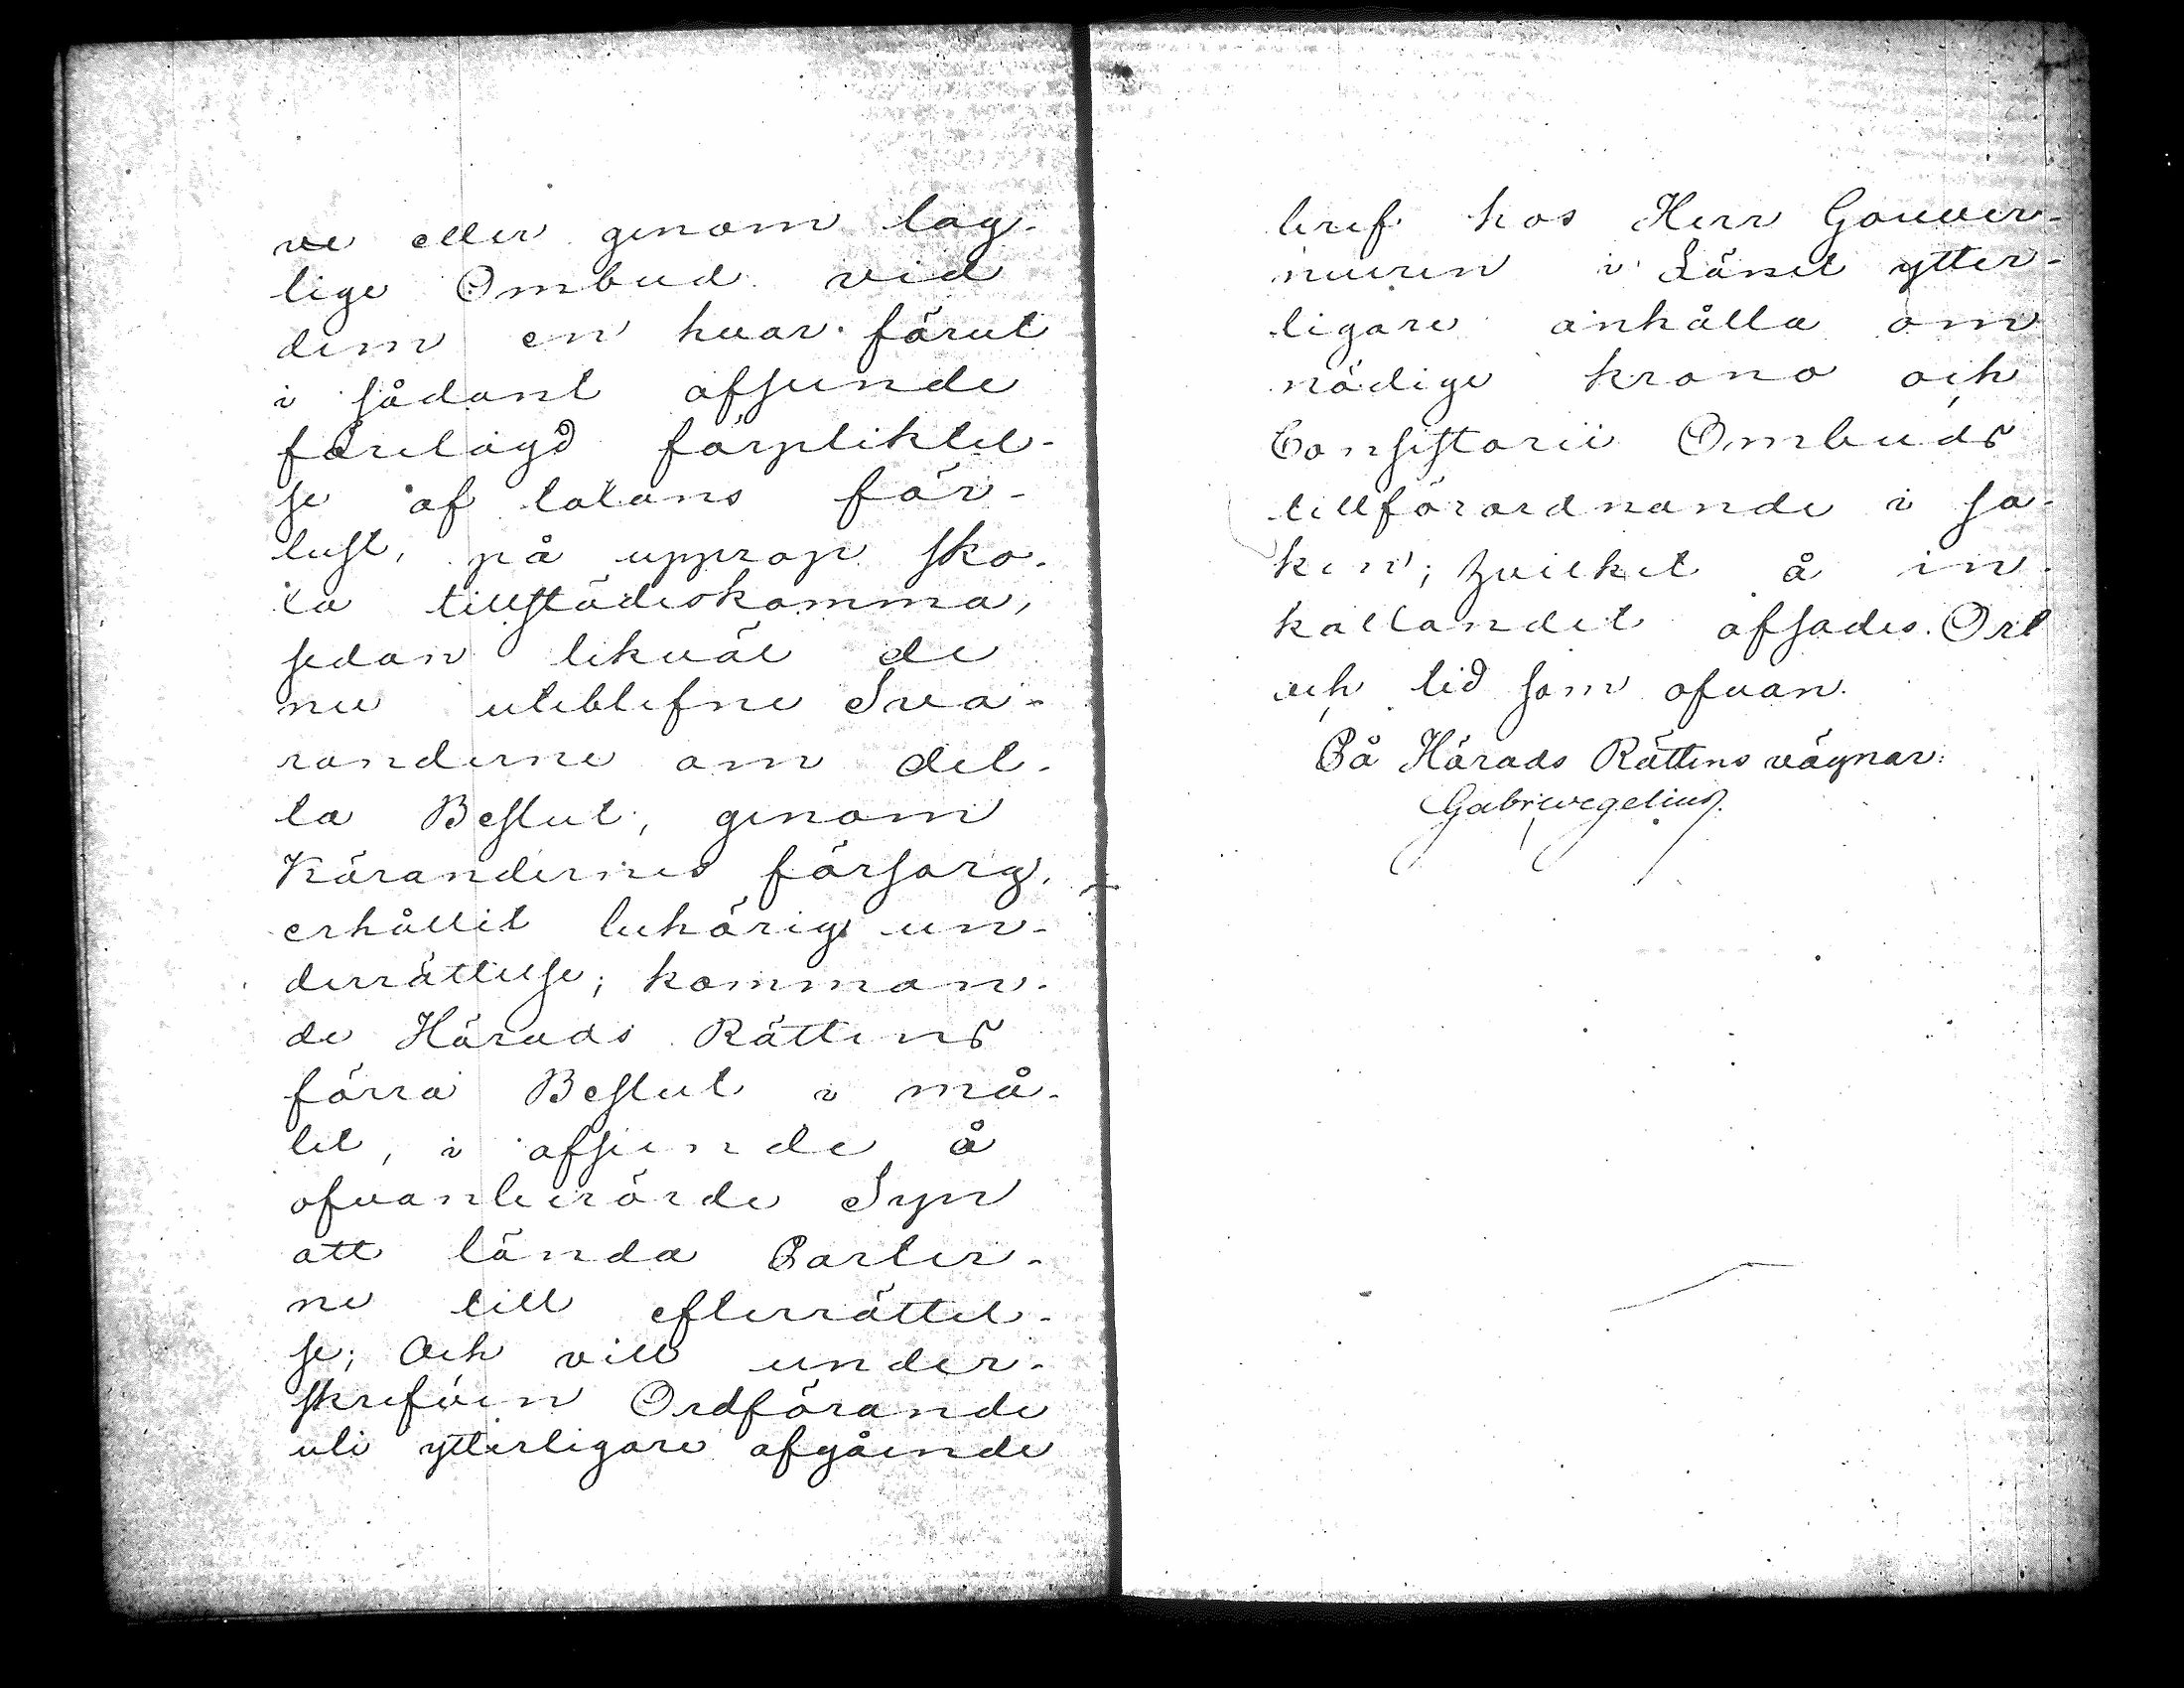 ve eller genom lag-
lige Ombud vid
dem en hvar förut
i sådant afseende
förelagd förpliktel-
se af talans för-
lust, på upprop sko-
la tillstädeskomma,
sedan likväl de
nu uteblefne Sva-
randerne om det-
ta Beslut, genom
Kärandernes försorg,
erhållit behörig un-
derrättelse; komman-
de Härads Rättens
förra Beslut i må-
let, i afseende å
ofvanberörde Syn
att lända Parter-
ne till efterrättel-
se; Och vill under-
skrefven Ordförande
uti ytterligare afgående
bref hos Herr Gouver-
neuren i Länet ytter-
ligare anhålla om
nödige krono och
Consistorii Ombuds
tillförordnande i sa-
ken; hvilket å in-
kallandet afsades. Ort
och tid som ofvan.
På Härads Rättens vägnar:
Gabr Wegelius